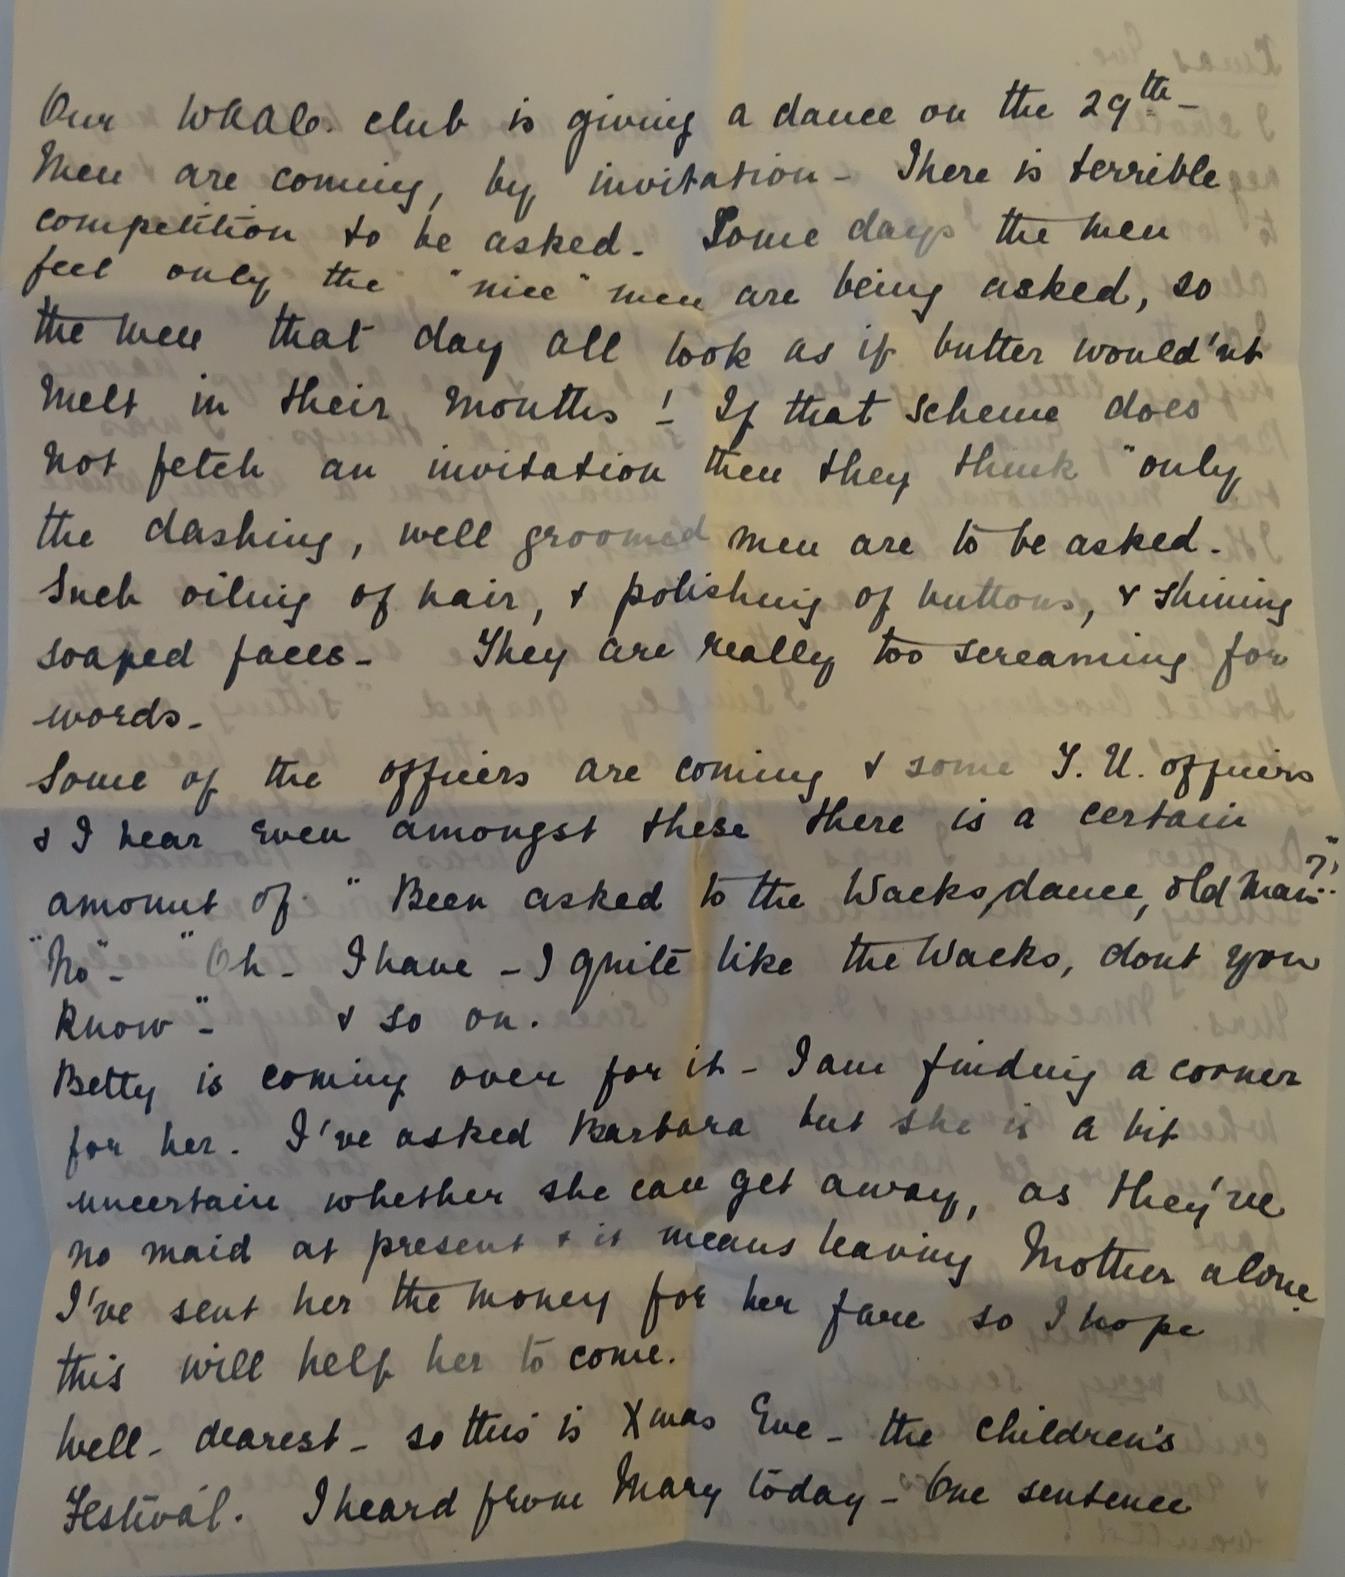 Our WAAC. club is giving a dance on the 29th -
Men are coming, by invitation - There is terrible
competition to be asked. Some days the men
feel only the "nice" men are being asked, so
the men that day all look as if butter would'nt
melt in their mouths! If that scheme does
not fetch an invitation then they think "only
the dashing, well groomed men are to be asked.
Such oiling of hair, & polishing of buttons, & shining
soaped faces - They are really too screaming for
words -
Some of the officers are coming & some I. U. officers
& I hear even amongst these there is a certain
amount of "Been asked to the Wacks, dance, old man?"
"No" - "Oh - I have - I quite like the Wacks, dont you
know" - & so on.
Betty is coming over for it - I am finding a corner
for her. I've asked Barbara but she is a bit
uncertain whether she can get away, as they've
no maid at present & it means leaving Mother alone.
I've sent her the money for her fare so I hope
this will help her to come.
Well - dearest - so this is Xmas Eve - the children's
Festival. I heard from Mary today - One sentence